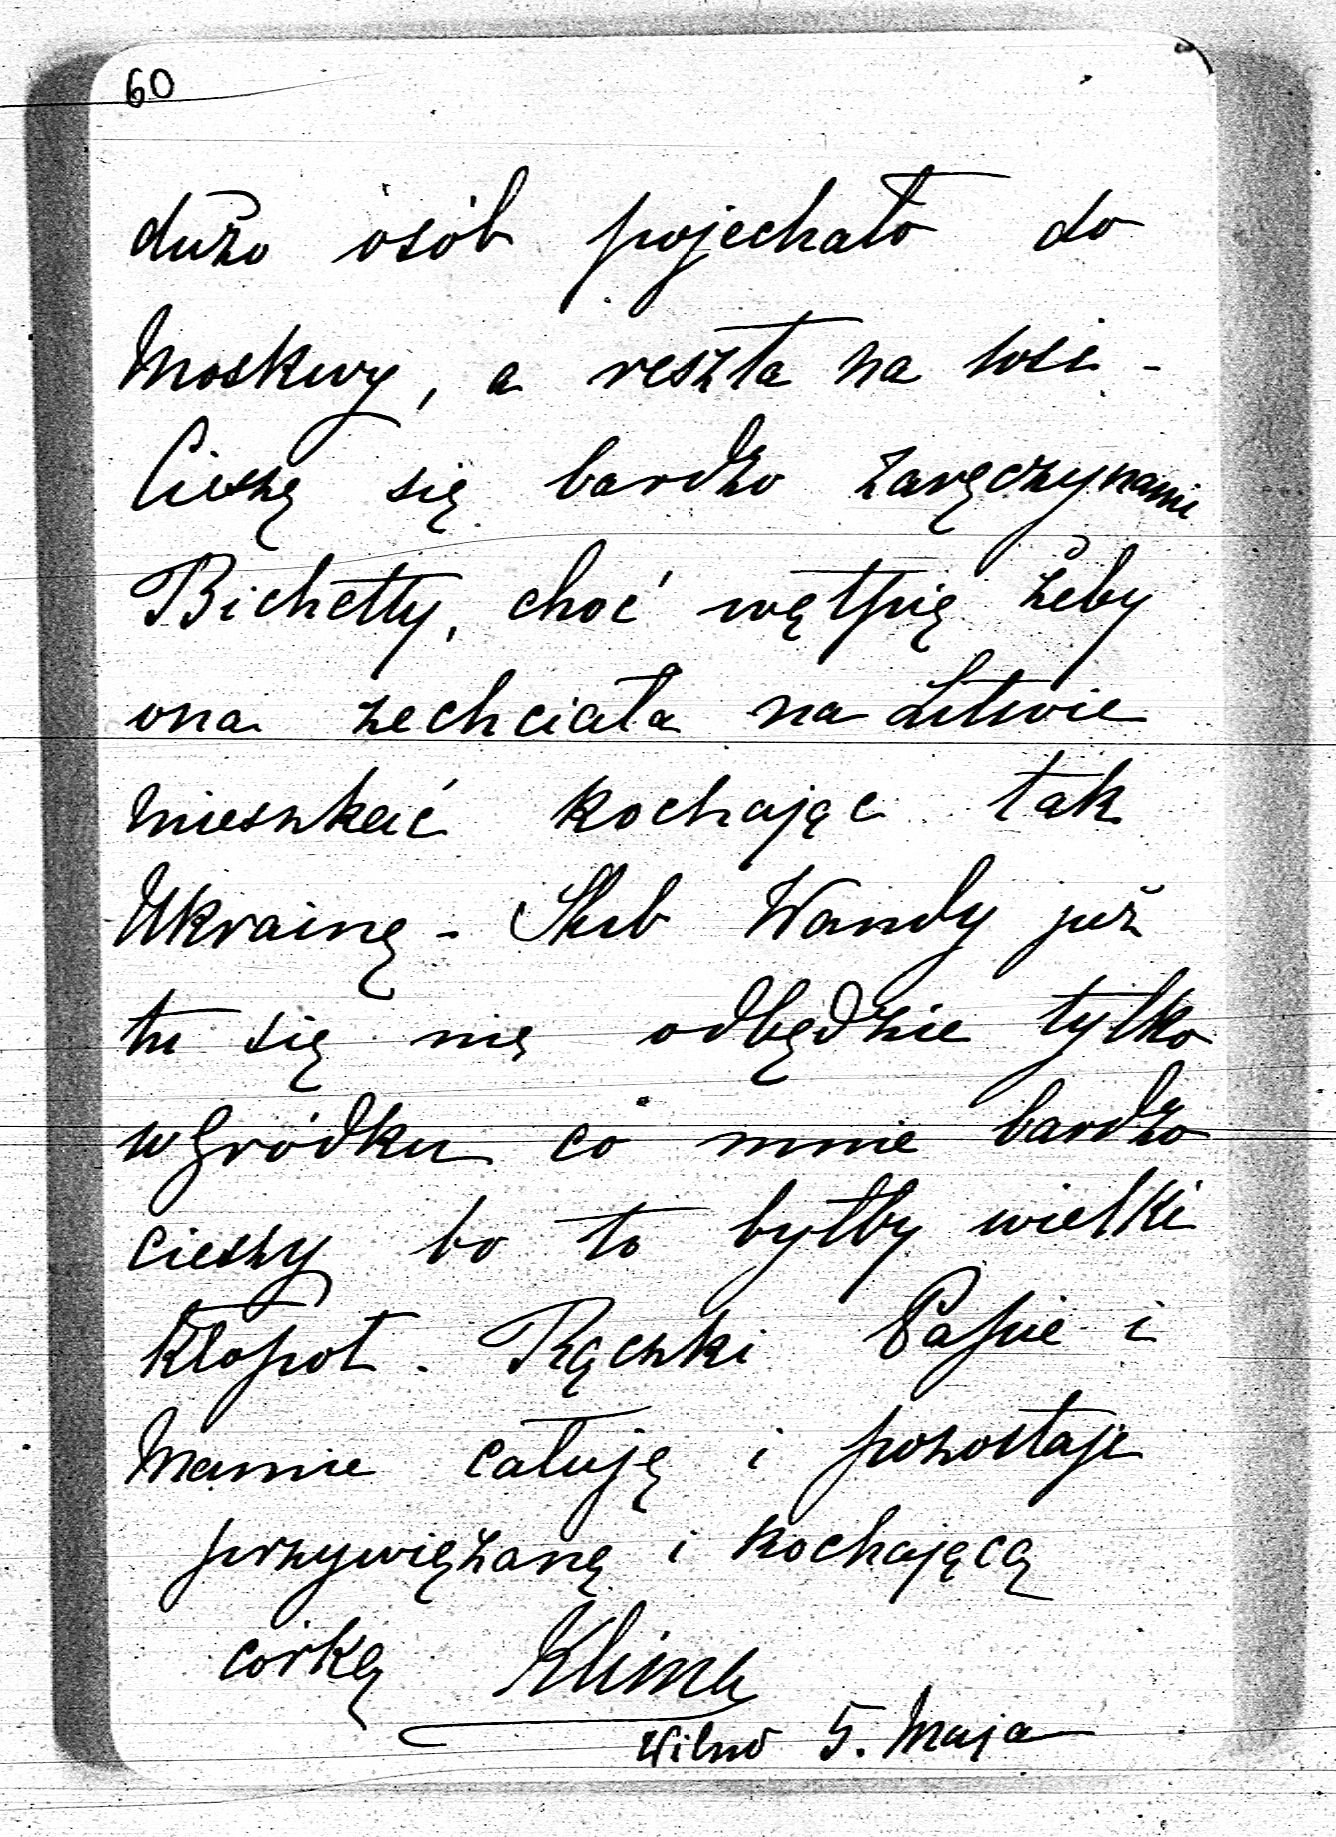 60
dużo osób pojechało do
Moskwy, a reszta na wsi -
Cieszę się bardzo zaręczynami
Bichetty, choć wętpię żeby
ona zechciała na Litwie
mieszkać kochając tak
Ukrainę - Ślub Wandy już
tu się nie odbędzie tylko
w Gródku co mnie bardzo
cieszy bo to byłby wielki
kłopot. Rączki Papie i
Mamie całuję i pozostaje
przywiązaną i kochającą
córką Klima
Wilno 5. Maja